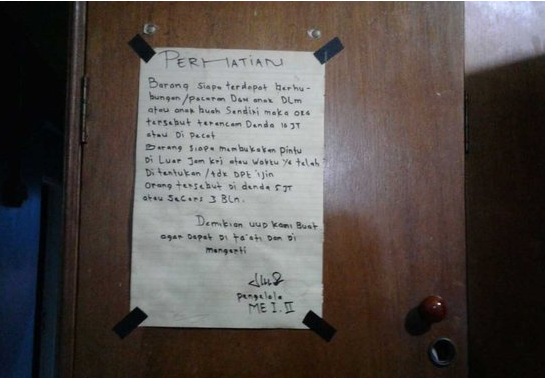 PERHATIAN
Barang siapa terdapat berhu-
bungan/pacaran Dgn anak DLm
atau anak buah Sendiri maka ORG
tersebut terancam Denda 10 JT
atau Di Pecat
Barang siapa membukakan pintu
Di Luar Jam krj atau Waktu Yg telah
Di tentukan/tdk DPt ijin
Orang tersebut Di denda 5 JT
atau SeCors 3 BLn.
Demikian UUD kami Buat
agar Dapat Di Ta'ati Dan Di
mengerti
pengelola
ME I. II